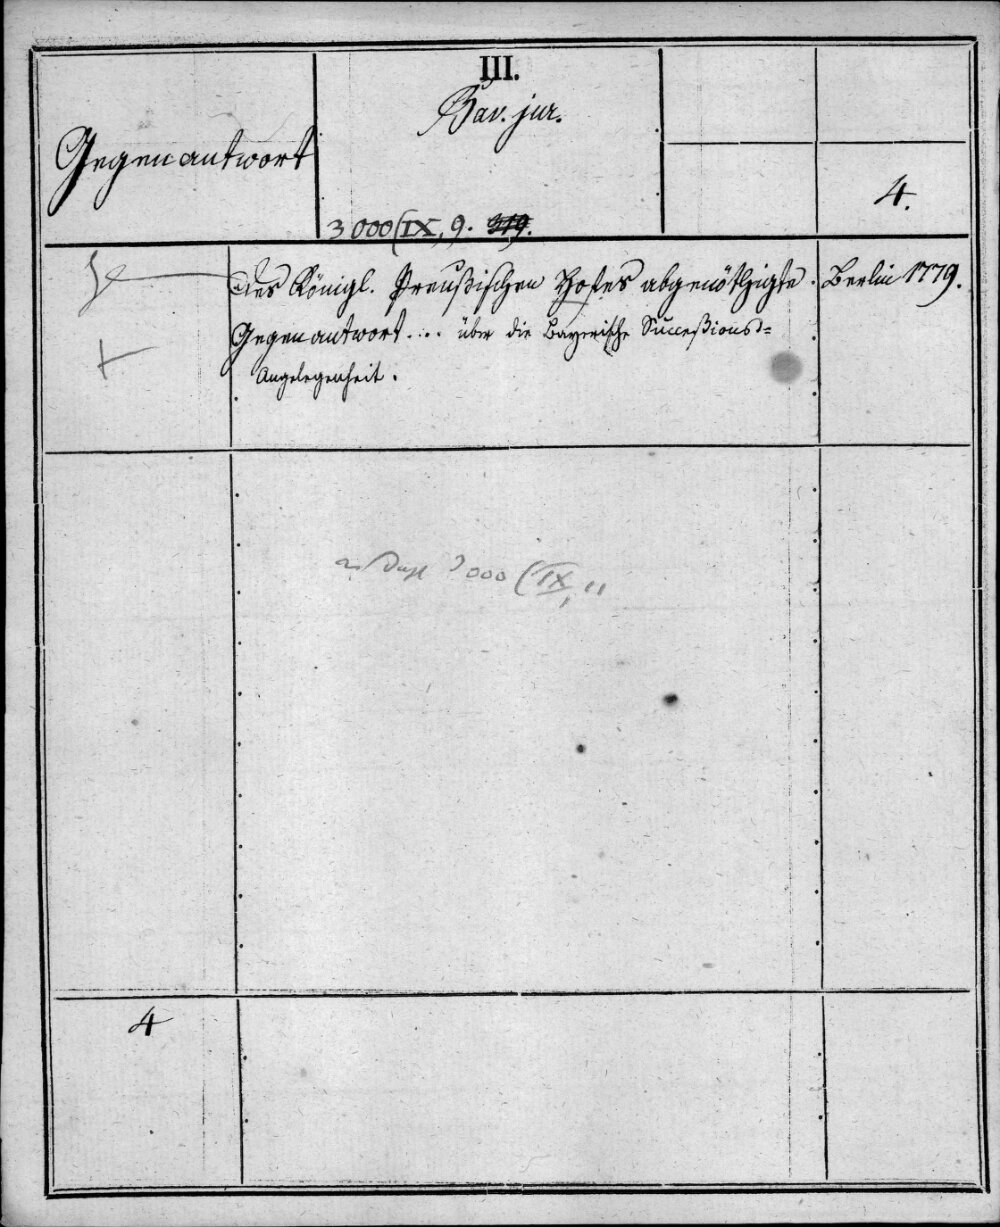 III.
Bav. jur.
Gegenantwort
4.
3000 (IX, 9. 319.
Des Königl. Preußischen Hofes abgenöthigte
Gegenantwort.... über die Bayerische Succeßions-
Angelegenheit.
Berlin 1779.
3000 (IX, 11
4